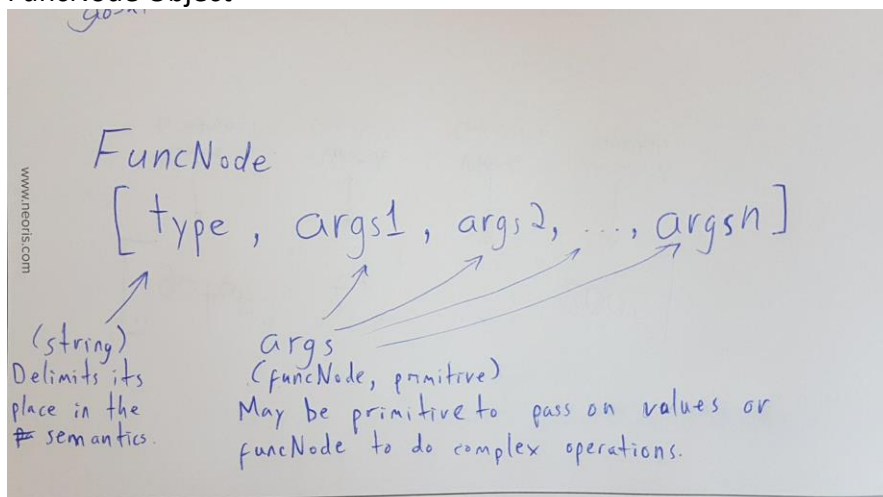 FuncNode Object
www.neoris.com
FuncNode
[type, args1, args2, ..., argsn]
(string)
Delimits its
place in the
semantics.
args
(funcNode, primitive)
May be primitive to pass on values or
funcNode to do complex operations.